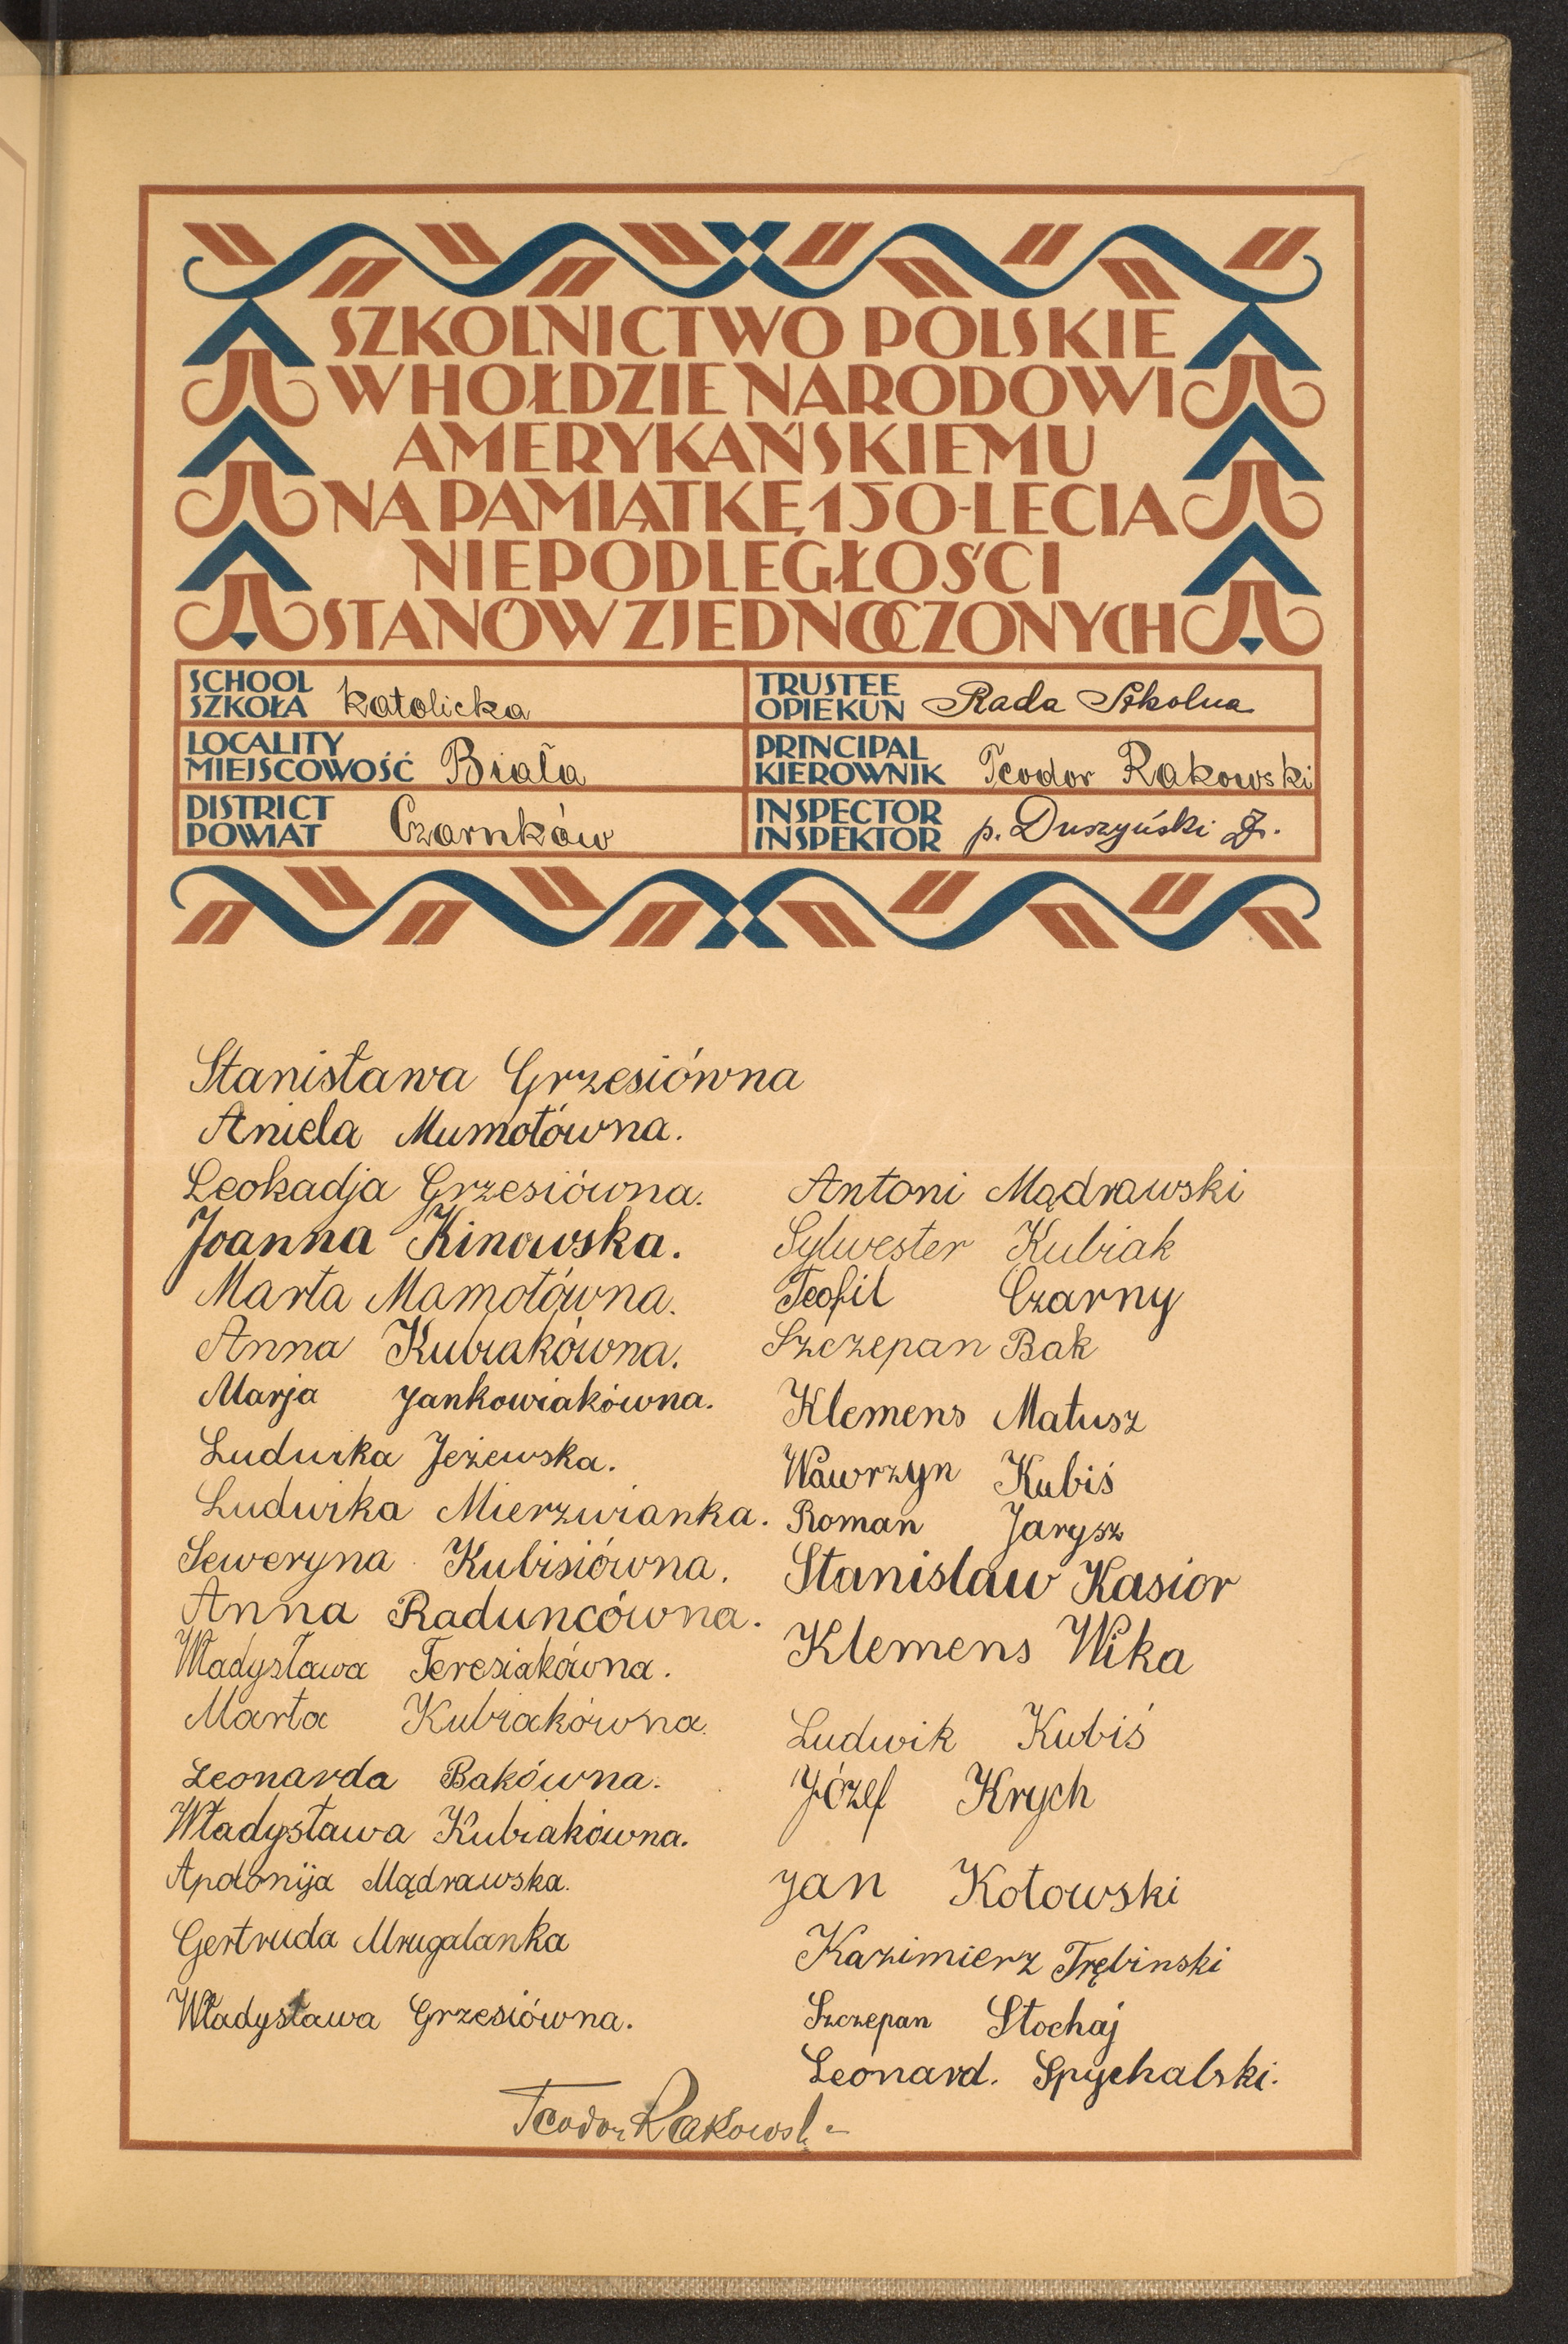 SZKOLNICTWO POLSKIE
W HOŁDZIE NARODOWI
AMERYKAŃSKIEMU
NA PAMIĄTKĘ 150-LECIA
NIEPODLEGŁOŚCI
STANÓW ZJEDNOCZONYCH
SCHOOL
SZKOŁA Katolicka
LOCALITY
MIEJSCOWOŚĆ Biała
DISTRICT
POWIAT Czarnków
TRUSTEE
OPIEKUN Rada Szkolna
PRINCIPAL
KIEROWNIK Teodor Rakowski
INSPECTOR
INSPEKTOR p. Duszyński J.
Stanisława Grzesiówna
Aniela Mumotówna.
Leokadja Grzesiówna.
Joanna Kinowska.
Marta Mamotówna.
Anna Kubiakówna.
Marja Jankowiakówna.
Ludwika Jeżewska.
Ludwika Mierzwianka.
Seweryna Kubisiówna.
Anna Raduncówna.
Władysława Teresiakówna.
Marta Kubiakówna.
Leonarda Bakówna.
Władysława Kubiakówna.
Apolonija Mądrawska.
Gertruda Mrugalanka
Władysława Grzesiówna.
Antoni Mądrawski
Sylwester Kubiak
Teofil Czarny
Szczepan Bak
Klemens Matusz
Wawrzyn Kubiś
Roman Jarysz
Stanislaw Kasior
Klemens Wika
Ludwik Kubiś
Józef Krych
Jan Kotowski
Kazimierz Trębinski
Szczepan Stochaj
Leonard. Spychalski.
Teodor Rakowski